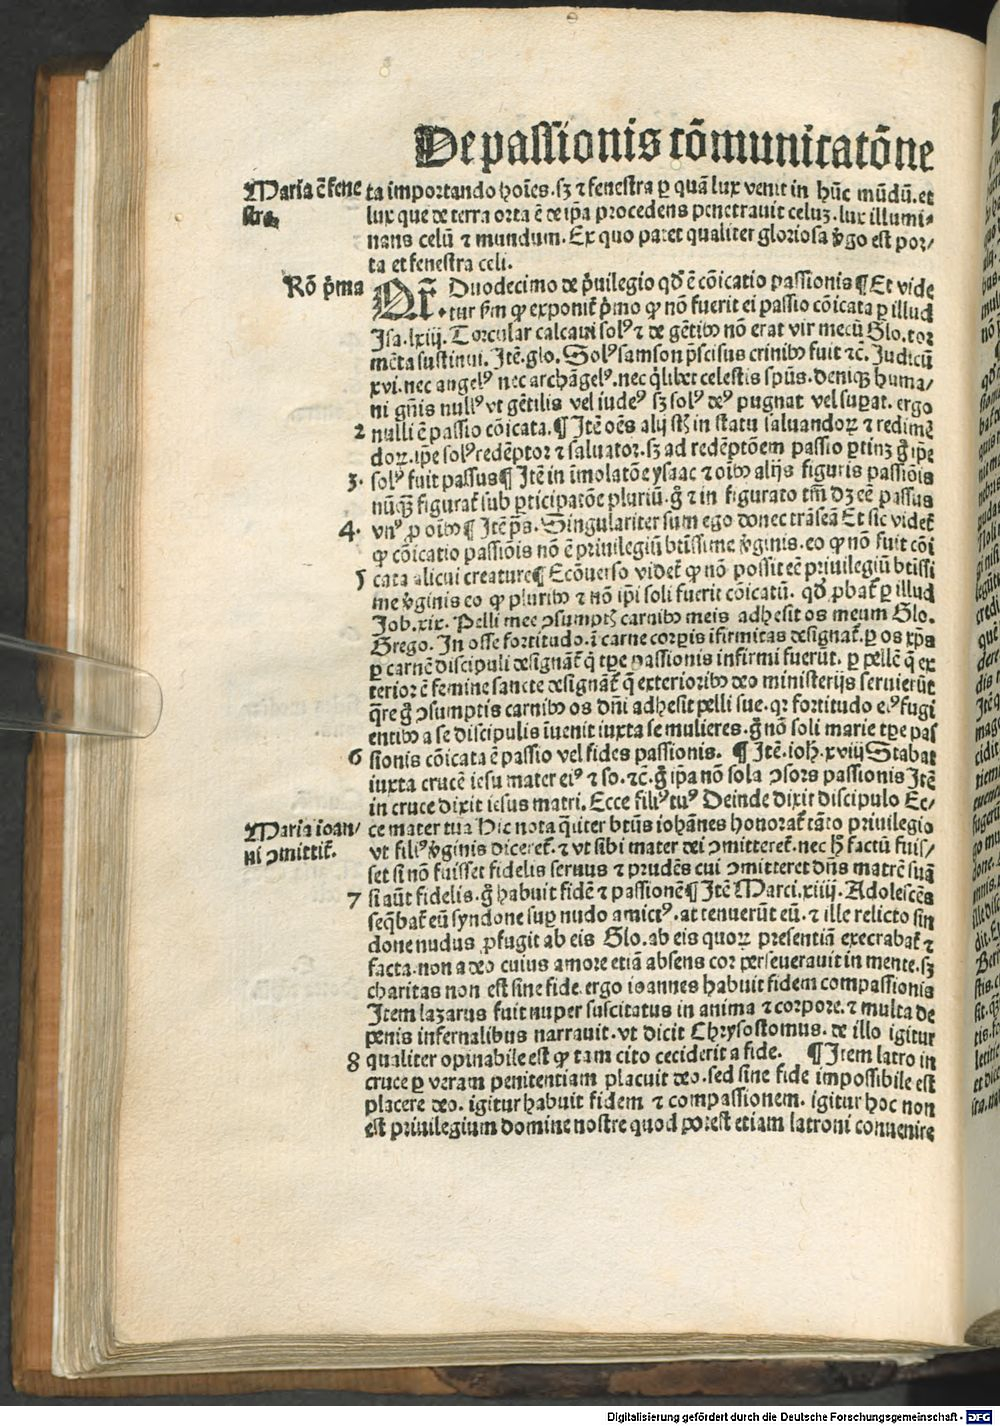 De passionis cõmunicatõne
Maria ẽ fene
stra.
ta importando hoĩes. sz ⁊ fenestra ꝑ quã lux venit in hũc mũdũ. et
lux que de terra orta ẽ de ip̃a procedens penetrauit celuz. lux illumi⸗
nans celũ ⁊ mundum. Ex quo patet qualiter gloriosa v̾go est por⸗
ta et fenestra celi.
Rõ p̾ma
Duodecimo de p̾uilegio qđ ẽ cõicatio passionis ¶ Et vide
tur ẜm ꝙ exponit᷑ p̾mo ꝙ nõ fuerit ei passio cõicata ꝑ illud
Isa. lxiij. Torcular calcaui solꝰ ⁊ de gẽtibꝰ nõ erat vir mecũ Glo. tor
mẽta sustinui. Itẽ. glo. Solꝰ samson p̃scisus crinibꝰ fuit ⁊c̃. Judicũ
xvi. nec angelꝰ nec archãgelꝰ. nec q̾libet celestis sp̃us. deniqꝫ huma⸗
ni gñis nullꝰ vt gẽtilis vel iudeꝰ sz solꝰ deꝰ pugnat vel suꝑat. ergo
2 nulli ẽ passio cõicata. ¶ Itẽ oẽs alij st̃ in statu saluandoꝝ ⁊ redimẽ
doꝝ. ip̃e solꝰ redẽptor ⁊ saluator. sz ad redẽptõem passio ꝑtinz g̾ ip̃e
3. solꝰ fuit passus ¶ Itẽ in ĩmolatõe ysaac ⁊ oĩbꝰ alijs figuris passiõis
nũqꝫ figurat᷑ sub ꝑticipatõe pluriũ. g̾ ⁊ in figurato tm̃ dz eẽ passus
4. vnꝰ ꝓ oĩbꝰ ¶ Itẽ p̃s. Singulariter sum ego donec trãseã Et sic videt᷑
ꝙ cõicatio passiõis nõ ẽ priuilegiũ btissime v̾ginis. eo ꝙ nõ fuit cõi
5 cata alicui creature ¶ Ecõuerso videt᷑ ꝙ nõ possit eẽ priuilegiũ btissi
me v̾ginis eo ꝙ pluribꝰ ⁊ nõ ip̃i soli fuerit cõicatũ. qđ ꝓbat᷑ ꝑ illud
Job. xix. Pelli mee ↄsumptꝭ carnibꝰ meis adhesit os meum Glo.
Grego. In osse fortitudo. ĩ carne corꝑis ĩfirmitas designat᷑. ꝑ os xp̃s
ꝑ carnẽ discipuli designãt᷑ q̾ tꝑe passionis infirmi fuerũt. ꝑ pellẽ q̃ ex
terior ẽ femine sancte designãt᷑ q̃ exterioribꝰ deo ministerijs seruierũt
q̃re g̾ ↄsumptis carnibꝰ os dñi adhesit pelli sue. qꝛ fortitudo eiꝰ fugi
entibꝰ a se discipulis ĩuenit iuxta se mulieres. g̾ nõ soli marie tꝑe pas
6 sionis cõicata ẽ passio vel fides passionis. ¶ Itẽ. ioh. xviij Stabat
iuxta crucẽ iesu mater eiꝰ ⁊ so. ⁊c̃. g̾ ip̃a nõ sola ↄsors passionis Itẽ
in cruce dixit iesus matri. Ecce filiꝰ tuꝰ Deinde dixit discipulo Ec⸗
Maria ioan⸗
ni ↄmittit᷑.
ce mater tua Hic nota q̃liter btũs iohãnes honorat᷑ tãto priuilegio
vt filiꝰ v̾ginis diceret᷑. ⁊ vt sibi mater dei ↄmitteret᷑. nec h̾ factũ fuis⸗
set si nõ fuisset fidelis seruus ⁊ prudẽs cui ↄmitteret dñs matrẽ suã
7 si aũt fidelis. g̾ habuit fidẽ ⁊ passionẽ ¶ Itẽ Marci. xiiij. Adolescẽs
seq̃bat᷑ eũ syndone suꝑ nudo amictꝰ. at tenuerũt eũ. ⁊ ille relicto sin
done nudus ꝓfugit ab eis Glo. ab eis quoꝝ presentiã execrabat᷑ ⁊
facta. non a deo cuius amore etiã absens cor perseuerauit in mente. sz
charitas non est sine fide. ergo ioannes habuit fidem compassionis
Item lazarus fuit nuper suscitatus in anima ⁊ corpore. ⁊ multa de
penis infernalibus narrauit. vt dicit Chrysostomus. de illo igitur
8 qualiter opinabile est ꝙ tam cito ceciderit a fide. ¶ Item latro in
cruce ꝑ veram penitentiam placuit deo. sed sine fide impossibile est
placere deo. igitur habuit fidem ⁊ compassionem. igitur hoc non
est priuilegium domine nostre quod potest etiam latroni conuenire
Digitalisierung gefördert durch die Deutsche Forschungsgemeinschaft - DFG